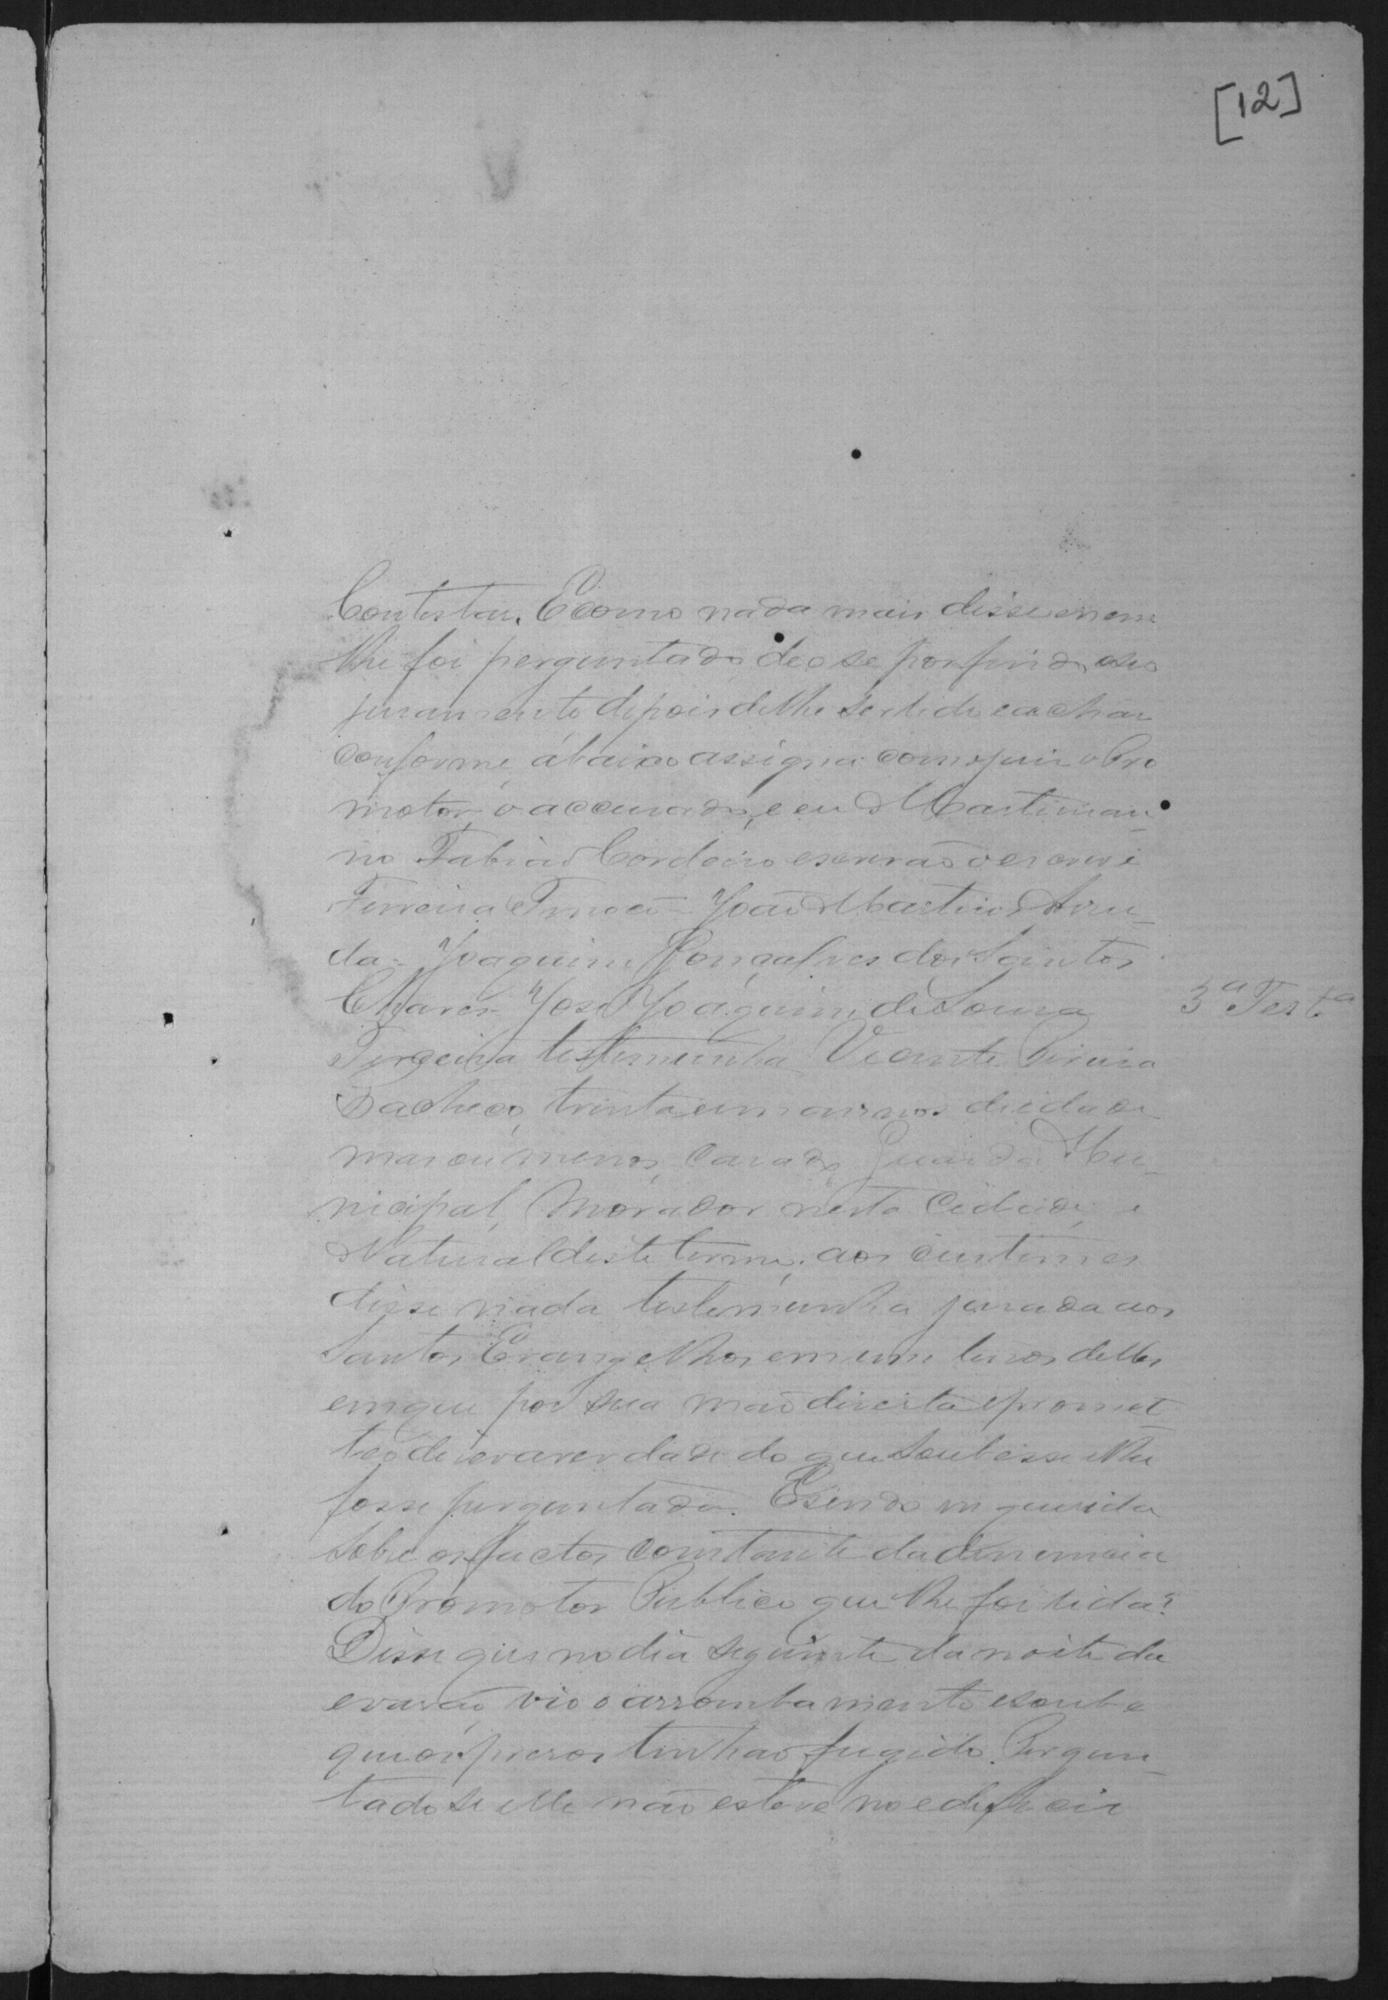 [12]
Contestar. E como nada mais disse nem
lhe foi perguntado deo se por findo o seu
juramento depois de lhe ser lido e achar
conforme, abaixo assigna com o juiz o Pro
motor, o accusado, e eu Martinian
no Fabião Cordeiro escrivão o escrevi
Ferreira João Martins Arru_
da - Joaquim Gonçalves dos Santos
Chaves - José Joaquim de Souza
3ª Testª
Terceira testemunha Vicente Pereira
Pacheco, trinta e um annos de idade
mais ou menos, casado, Guarda Mu_
nicipal, Morador nesta Cidade, e
Natural deste termo, aos custumes
disse nada testemunha jurada aos
Santos Evangelhos em um livro delles
em que pos sua mão direita e promet
teo dizer a verdade do que soubesse e lhe
fosse perguntado. E sendo inquerida
sobre os factos constante da denuncia
do Promotor Publico que lhe foi lida?
Disse que no dia seguinte da noite da
evasão vio o arrombamento e soube
que os prezos tinhão fugido. Pergun_
tado se elle não esteve no edificio